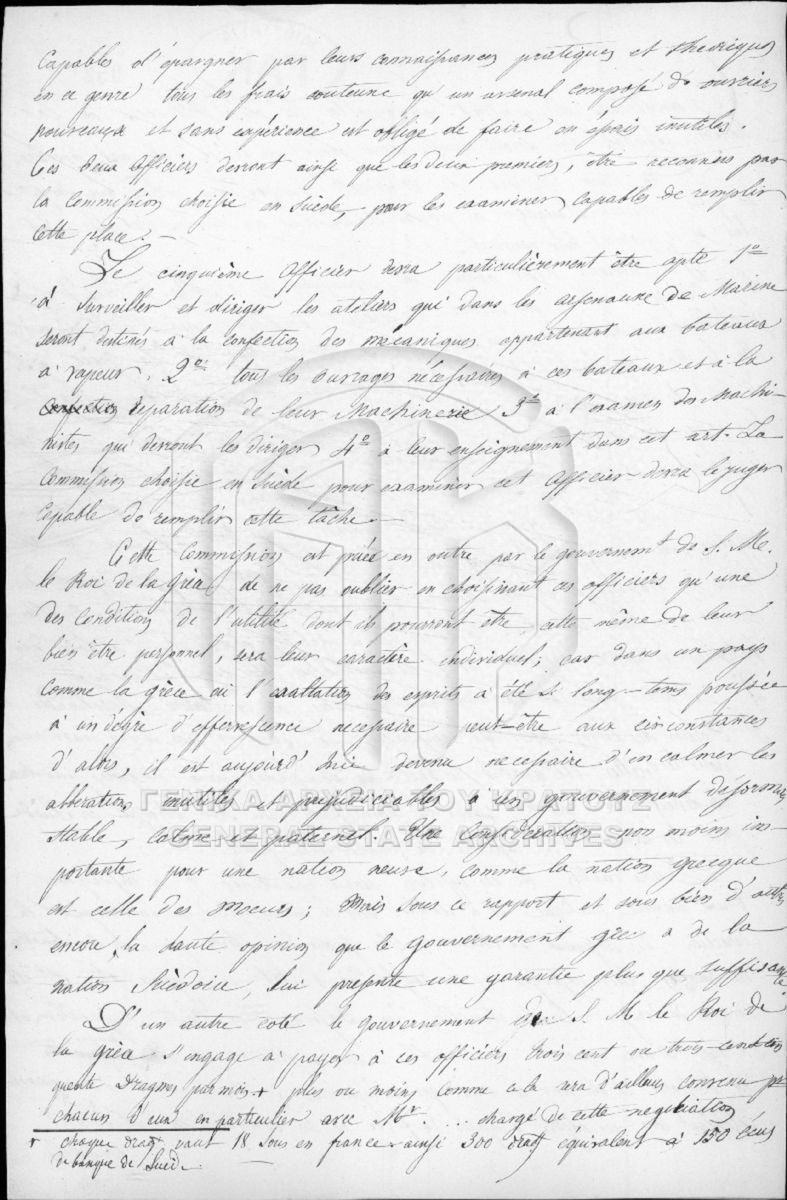 capables d'épargner par leurs connaissances pratiques et theoriques
en ce genre tous les frais qu'un arsenal composé de ouvriers
nouveaux et sans expérience est obligé de faire en éssais inutiles.
Ces deux Officiers devront ainsi que les deux premiers, être reconnus par
la Commission choisie en Suède, pour les examiner capables de remplir
cette place. —
Le cinquième Officier devra particulièrement être apte 1o
à surveiller et diriger les ateliers qui dans les arsenaux de Marine
seront destinés à la confection des mécaniques appartenant aux bateaux
a vapeur. 2o tous les ouvrages nécessaires à ces bateaux et à la
reparation de leur Machinerie 3o à l'examen des Machi-
nistes qui devront les diriger 4o à leur enseignement dans cet art. La
Commission choisie en Suède pour examiner cet Officier devra le juger
capable de remplir cette tâche. —
Cette Commission est priée en outre par le gouvernemt de S. Me.
le Roi de la Grèce de ne pas oublier en choisissant ces officiers qu'une
des conditions de l'utilité dont ils pourront être, celle même de leur
bien être personnel, sera leur caractère individuel; car dans un pays
comme la grèce où l'exaltation des esprits a été si long-tems poussée
à un dégré d'effervescence necessaire peut-être aux circonstances
d'alors, il est aujourd'hui devenu necessaire d'en calmer les
abberations inutiles et prejudiciables à un gouvernement désormais
stable, calme et paternel. Une consideration non moins im-
portante pour une nation neuve, comme la nation grecque
est celle des moeurs; Mais sous ce rapport et sous bien d'autres
encore, la haute opinion que le gouvernement grec a de la
nation Suèdoise, lui presente une garantie plus que suffisante
D'un autre coté le gouvernement de S. M le Roi de
la grèce s'engage a payer à ces officiers trois cent ou trois-cent cin
quante Dragmes par mois + plus ou moins comme il sera d'ailleurs convenu pr
chacun d'eux en particulier avec Mr. ... chargé de cette negociation
+ chaque drag vaut 18 sous en france ainsi 300 drag équivalent à 150 écus
de banque de Suède.
ΓΕΝΙΚΑ ΑΡΧΕΙΑ ΤΟΥ ΚΡΑΤΟΥΣ
GENERAL STATE ARCHIVES